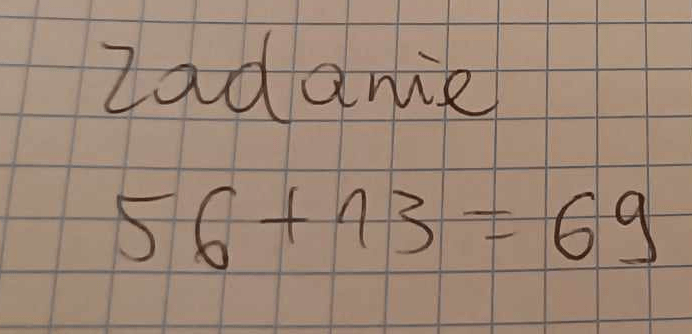 Zadanie
56 + 13 = 69